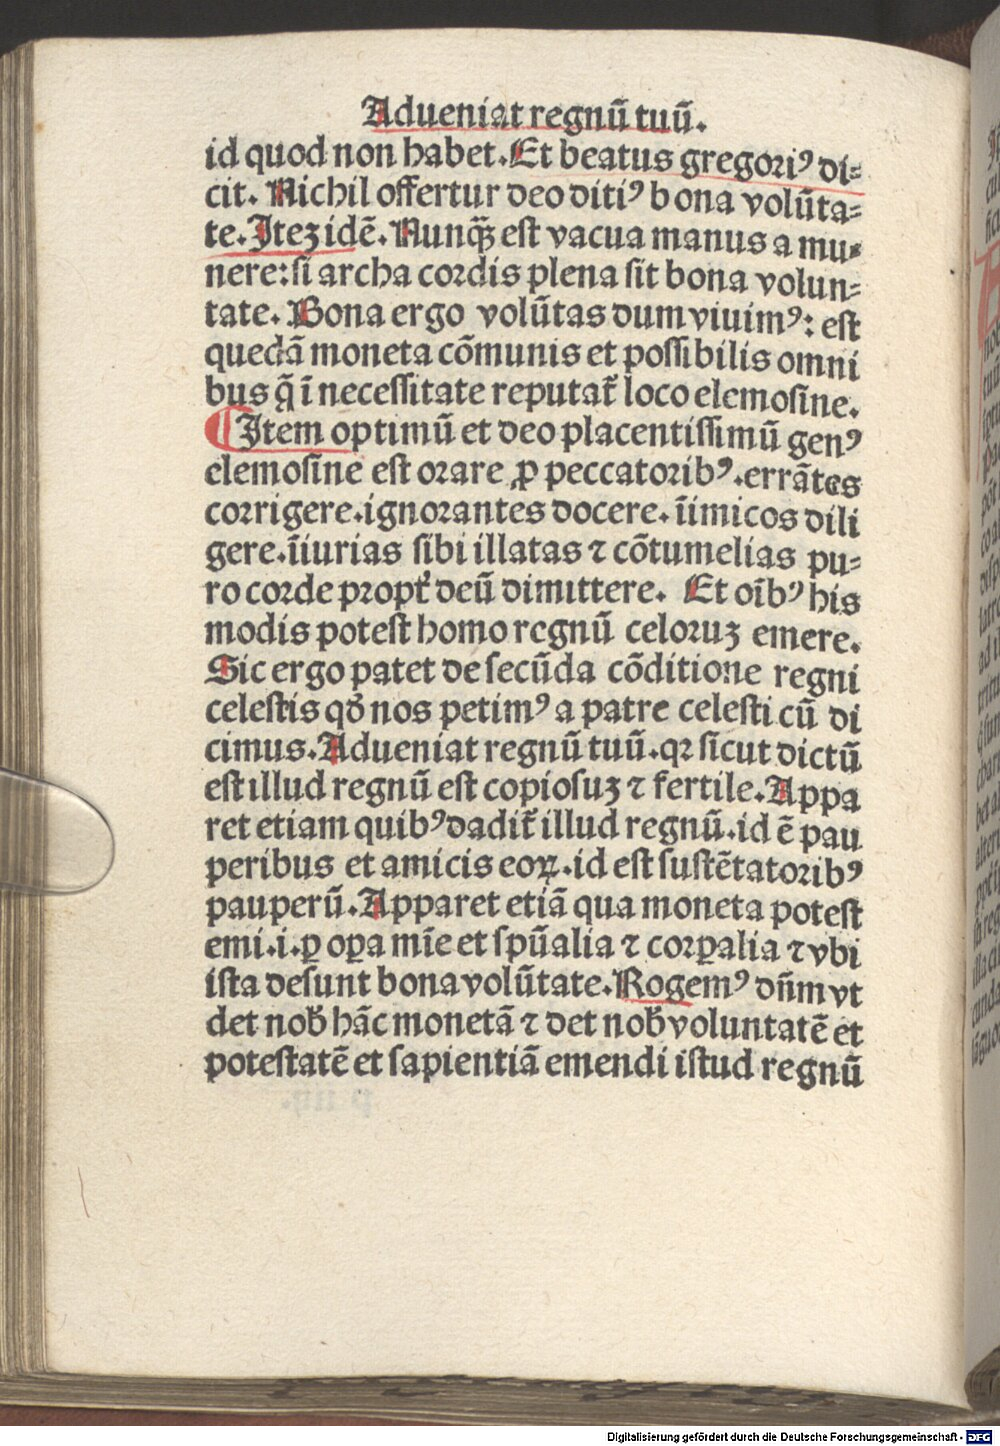 Adueniat regnū tuū.
id quod non habet. Et beatus gregoriꝰ di⸗
cit. Nichil offertur deo ditiꝰ bona volūta⸗
te. Iteꝫ idē. Nunqꝫ̄ est vacua manus a mu⸗
nere: si archa cordis plena sit bona volun⸗
tate. Bona ergo volūtas dum viuimꝰ: est
quedā moneta cōmunis et possibilis omni
bus q̄ ī necessitate reputat᷑ loco elemosine.
¶ Item optimū et deo placentissimū genꝰ
elemosine est orare ꝓ peccatoribꝰ. errātes
corrigere. ignorantes docere. īimicos dili
gere. īiurias sibi illatas ⁊ cōtumelias pu⸗
ro corde propt᷑ deū dimittere. Et oībꝰ his
modis potest homo regnū celoruꝫ emere.
Sic ergo patet de secūda cōditione regni
celestis qď nos petimꝰ a patre celesti cū di
cimus. Adueniat regnū tuū. qꝛ sicut dictū
est illud regnū est copiosuꝫ ⁊ fertile. Appa
ret etiam quibꝰ dadit᷑ illud regnū. id ē pau
peribus et amicis eoꝝ. id est sustētatoribꝰ
pauperū. Apparet etiā qua moneta potest
emi. i. ꝑ oꝑa mīe et spūalia ⁊ corꝑalia ⁊ vbi
ista desunt bona volūtate. Rogemꝰ dn̄m vt
det nob̄ hāc monetā ⁊ det nob̄ voluntatē et
potestatē et sapientiā emendi istud regnū
Digitalisierung gefördert durch die Deutsche Forschungsgemeinschaft - DFG